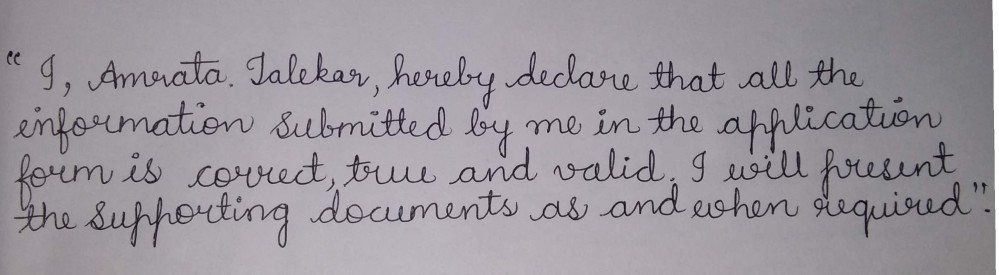 "I, Amrata. Talekar, hereby declare that all the
information submitted by me in the application
form is correct, true and valid. I will present
the supporting documents as and when required".